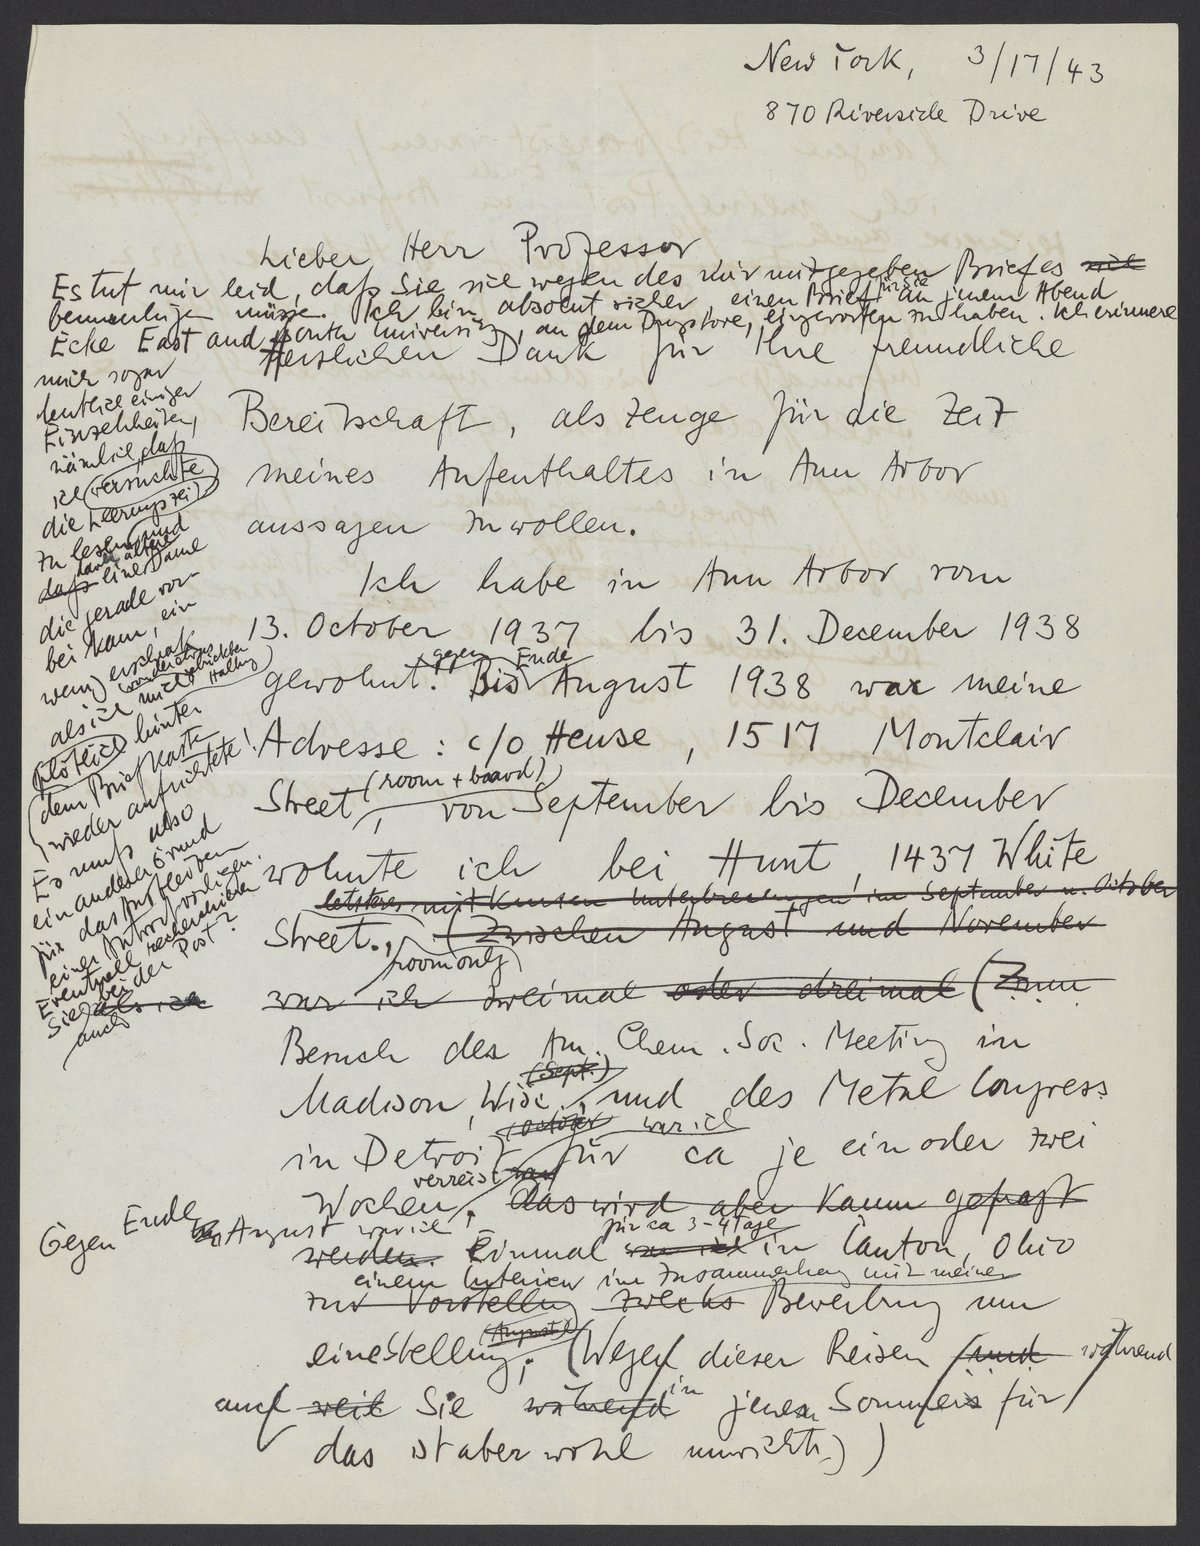 New York, 3/17/43
870 Riverside Drive
Lieber Herr Professor
Es tut mir leid, daß Sie sich wegen des mir mitgegeben Briefes sich
bemunhigen müsse. Ich bin absolut sicher, einen Brief für Sie an jenem Abend
Ecke East and South University, an dem Drugstore, eingeworfen zu haben. Ich erinnere
mich sogar
deutlich einiger
Einzelheiten,
nämlich, daß
ich versuchte
die Leerungszeit
zu lesen und
daß eine ältere Dame
die gerade vor-
bei kam, ein
wenig erschrak
als ich aus gebückter Haltung
plötzlich hinter
dem Briefkasten
wieder aufrichtete!
Es muß also
ein anderer Grund
für das Ausbleiben
einer Antwort vorliegen.
Eventuell recherchieren
Sie bei der Post?
auch als ich
Herzlichen Dank für Ihre freundliche
Bereitschaft, als Zeuge für die Zeit
meines Aufenthaltes in Ann Arbor
aussagen zu wollen.
Ich habe in Ann Arbor vom
13. October 1937 bis 31. December 1938
gegen Ende
gewohnt. Bis August 1938 war meine
Adresse: c/o Heuse, 1517 Montclair
Street (room + board), von September bis December
wohnte ich bei Hunt, 1437 White
letzteres mit kurzen Unterbrechungen im September u. October
Street., (Zwischen August und November
room only)
war ich zweimal oder dreimal (Zum
Besuch des Am. Chem. Soc. Meeting in
(Sept.)
Madison, Wisc., und des Metal Congress
(October) war ich
in Detroit für ca je ein oder zwei
verreist
Wochen. Das wird aber kaum gefragt
Gegen Ende August war ich
für ca 3-4 Tage
werden. Einmal war ich in Canton, Ohio
einem Interview im Zusammenhang mit meiner
zur Vorstellung zwecks Bewerbung um
(August)
eine Stellung. (Wegen dieser Reisen und während
auch weil Sie während in jenem Sommers für
das ist aber wohl unwichtig))